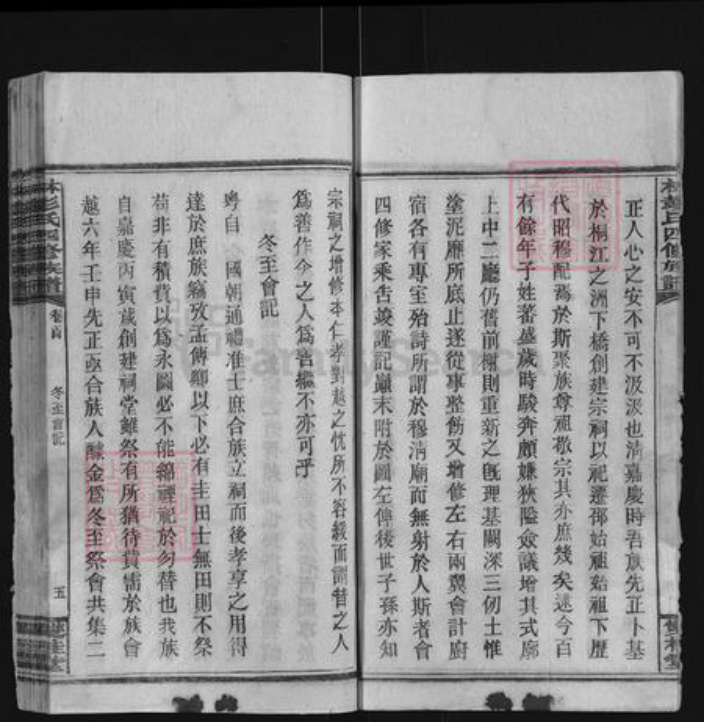 正人心之安不可不汲汲也清嘉慶時吾族先正卜基
於桐江之洲下橋創建宗祠以祀遷邵始祖始祖下歷
代昭穆配焉於斯聚族尊祖敬宗其亦庶幾矣迄今百
有餘年子姓蕃盛歲時駿奔頗嫌狹隘僉議增其式廓
上中二廳仍舊前棟則重新之旣理基闢深三仞土惟
塗泥靡所底止遂從事整飭又增修左右兩翼會計廚
宿各有專室殆詩所謂於穆清廟而無射於人斯者會
四修家乘告竣謹記巔末附於圖左俾後世子孫亦知
宗祠之增修本仁孝對越之忱所不容緩而謂昔之人
爲善作今之人爲善繼不亦可乎
冬至會記
粵自 國朝通禮准士庶合族立祠而後孝享之用得
達於庶族竊攷孟傳卿以下必有圭田士無田則不祭
苟非有積貲以爲永圖必不能綿禋祀於勿替也我族
自嘉慶丙寅歲創建祠堂雖祭有所猶待貲需於族會
越六年壬申先正亟合族人醵金爲冬至祭會共集二
林彭氏四修族譜
卷首
冬至會記
五
雙桂堂
林彭氏四修族譜
雙桂堂
FamilySearch